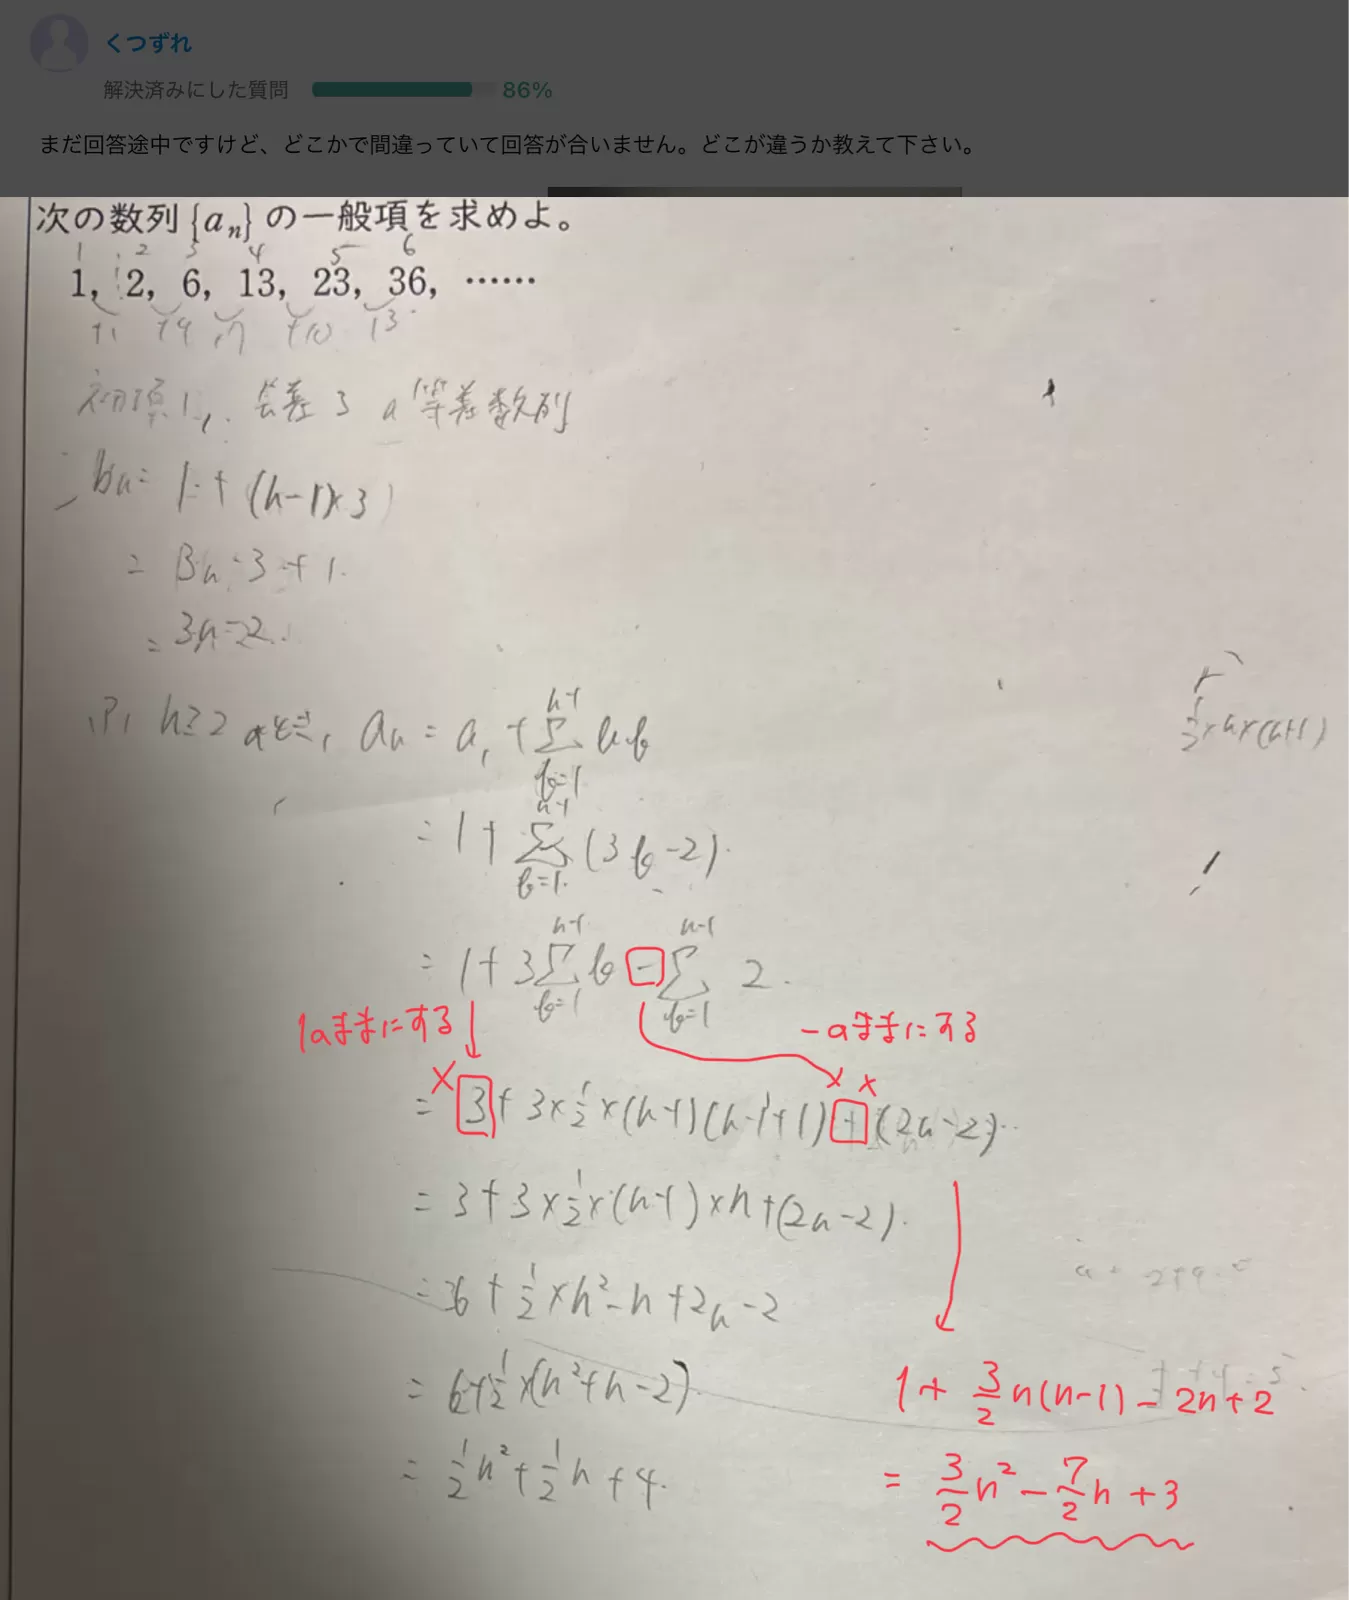 くつずれ
解決済みにした質問 86%
まだ回答途中ですけど、どこかで間違っていて回答が合いません。どこが違うか教えて下さい。
次の数列{aₙ}の一般項を求めよ。
1 2 3 4 5 6
1, 2, 6, 13, 23, 36, ……
+1 +4 +7 +10 13
初項1, 公差3の等差数列
bn = 1 + (n-1)×3
= 3n-3+1
= 3n-2
n≧2のとき, an = a₁ + Σ[k=1, n-1] bk
= 1 + Σ[k=1, n-1] (3k-2)
= 1 + 3Σ[k=1, n-1] k - Σ[k=1, n-1] 2
1のままにする -のままにする
× ×
= 3 + 3×1/2×(n-1)(n-1+1) + (2n-2)
= 3 + 3×1/2×(n-1)×n+(2n-2)
= 36 + 1/2×n²-n+2n-2
= 6+1/2×(n²+n-2)
1+ 3/2 n(n-1) - 2n+2
= 1/2n²+1/2n+4
= 3/2 n² - 7/2 n + 3
1/2×n×(n+1)